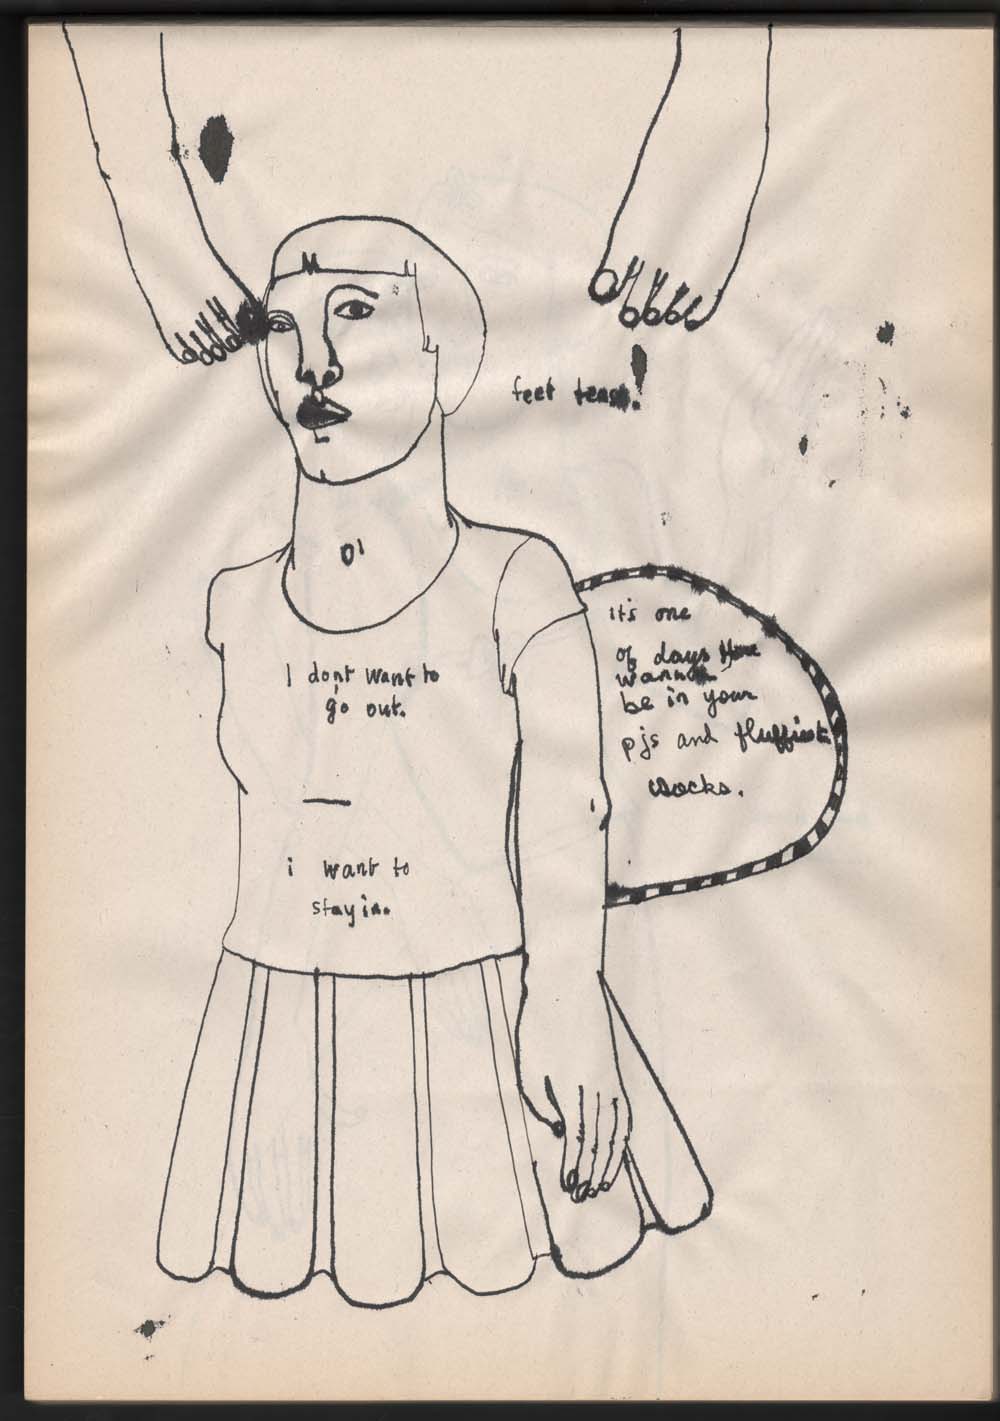 feet tease!
I dont want to
go out.
i want to
stay in.
it's one
of days
wanna
be in your
pjs and fluffiest
socks.